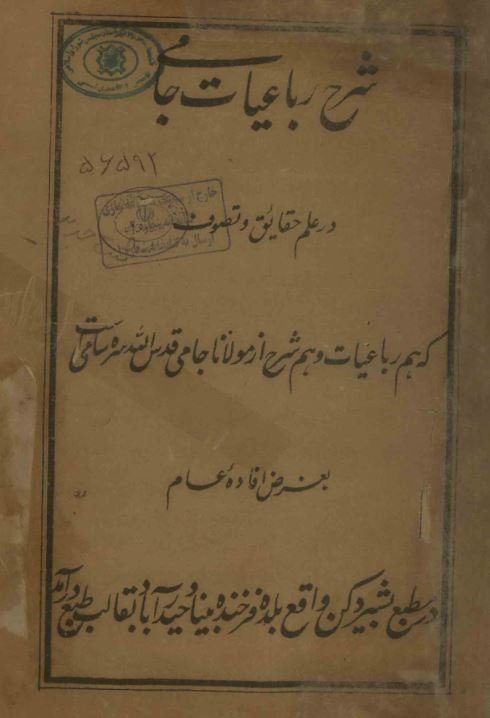 شرح رباعیات جامی
۵۶۵۹۲
در علم حقائق و تصوف
که هم رباعیات و هم شرح از مولانا جامی قدس الله سره السامی است
بغرض افادهٔ عام
در مطبع بشیر دکن واقع بلده فرخنده بنیاد حیدرآباد بقالب طبع درآمد